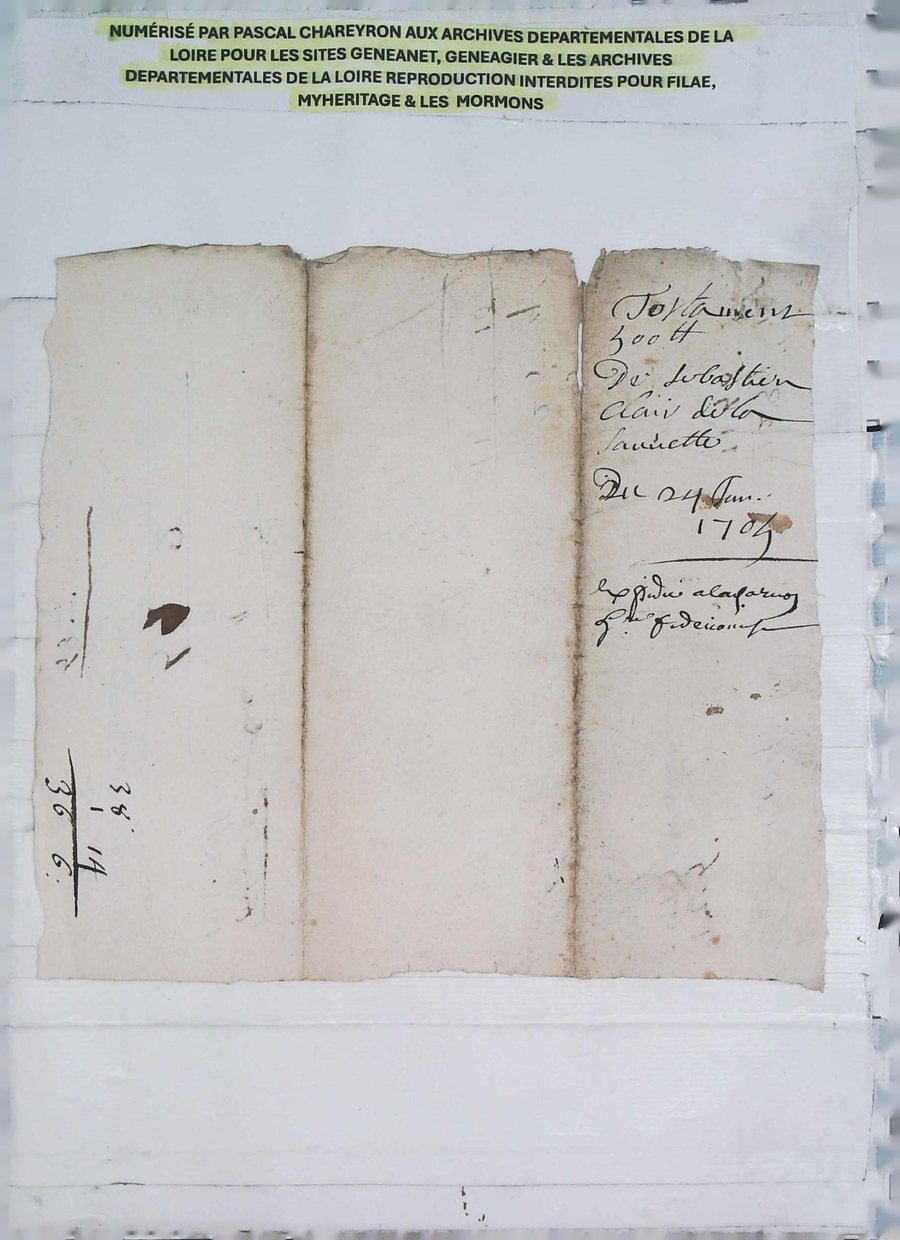 NUMÉRISÉ PAR PASCAL CHAREYRON AUX ARCHIVES DEPARTEMENTALES DE LA
LOIRE POUR LES SITES GENEANET, GENEAGIER & LES ARCHIVES
DEPARTEMENTALES DE LA LOIRE REPRODUCTION INTERDITES POUR FILAE,
MYHERITAGE & LES MORMONS
Testament
500 tt
De sebastien
Clair de la
Du 24 Jun..
1705
38 14
1
36 6